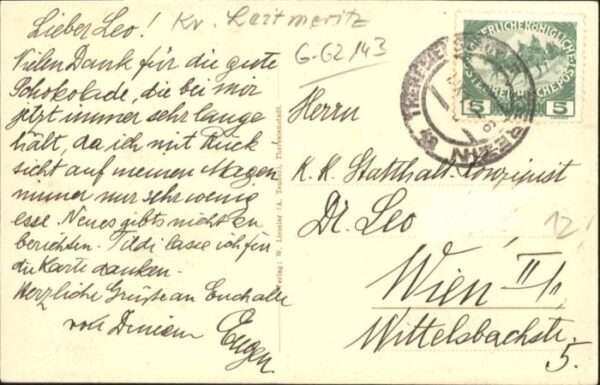 Lieber Leo!
Kr. Leitmeritz
G-62/143
Vielen Dank für die gute
Schokolade, die bei mir
jetzt immer sehr lange
hält, da ich mit Rück
sicht auf meinen Magen
immer nur sehr wenig
esse. Neues gibts nicht zu
berichten. lasse ich für
die Karte danken.
Herzliche Grüße an Euch alle
von Deinem Eugen
Verlag: W.
KAISERLICHE KÖNIGLICHE
ÖSTERREICHISCHE POST
5 5
THERESIEN
Herrn
K. K. Statthalt. Konzipist
Dr. Leo
Wien II/1
Wittelsbachstr.
5.
12